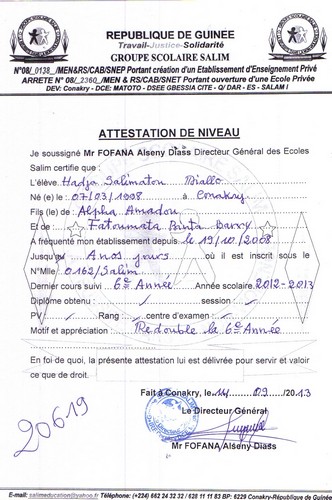 REPUBLIQUE DE GUINÉE
Travail-Justice-Solidarité
GROUPE SCOLAIRE SALIM
N°08/_0138_/MEN&RS/CAB/SNEP Portant création d'un Etablissement d'Enseignement Privé
ARRETE N° 08/_2360_/MEN & RS/CAB/SNEP Portant ouverture d'une Ecole Privée
DEV: Conakry - DCE: MATOTO - DSEE GBESSIA CITE - Q/ DAR - ES - SALAM I
ATTESTATION DE NIVEAU
Je soussigné Mr FOFANA Alseny Diass Directeur Général des Ecoles
Salim certifie que :
L'élève Hadja Salimatou Diallo
Né (e) le : 07/03/1998 à Conakry
Fils (le) de : Alpha Amadou
Et de Fatoumata Binta Barry
A fréquenté mon établissement depuis le 19/10/2008
Jusqu'au A nos jours où il est inscrit sous le
N°Mlle 0162/Salim
Dernier cours suivi 6e Année Année scolaire 2012-2013
Diplôme obtenu : / session : /
PV / Rang : / centre d'examen : /
Motif et appréciation : Redouble la 6e Année
En foi de quoi, la présente attestation lui est délivrée pour servir et valoir
ce que de droit.
Fait à Conakry, le 09 /2013
20619
Le Directeur Général
Mr FOFANA Alseny Diass
E-mail: salimeducation@yahoo.fr Téléphone: (+224) 662 24 32 32 / 628 11 11 83 BP: 6229 Conakry-République de Guinée